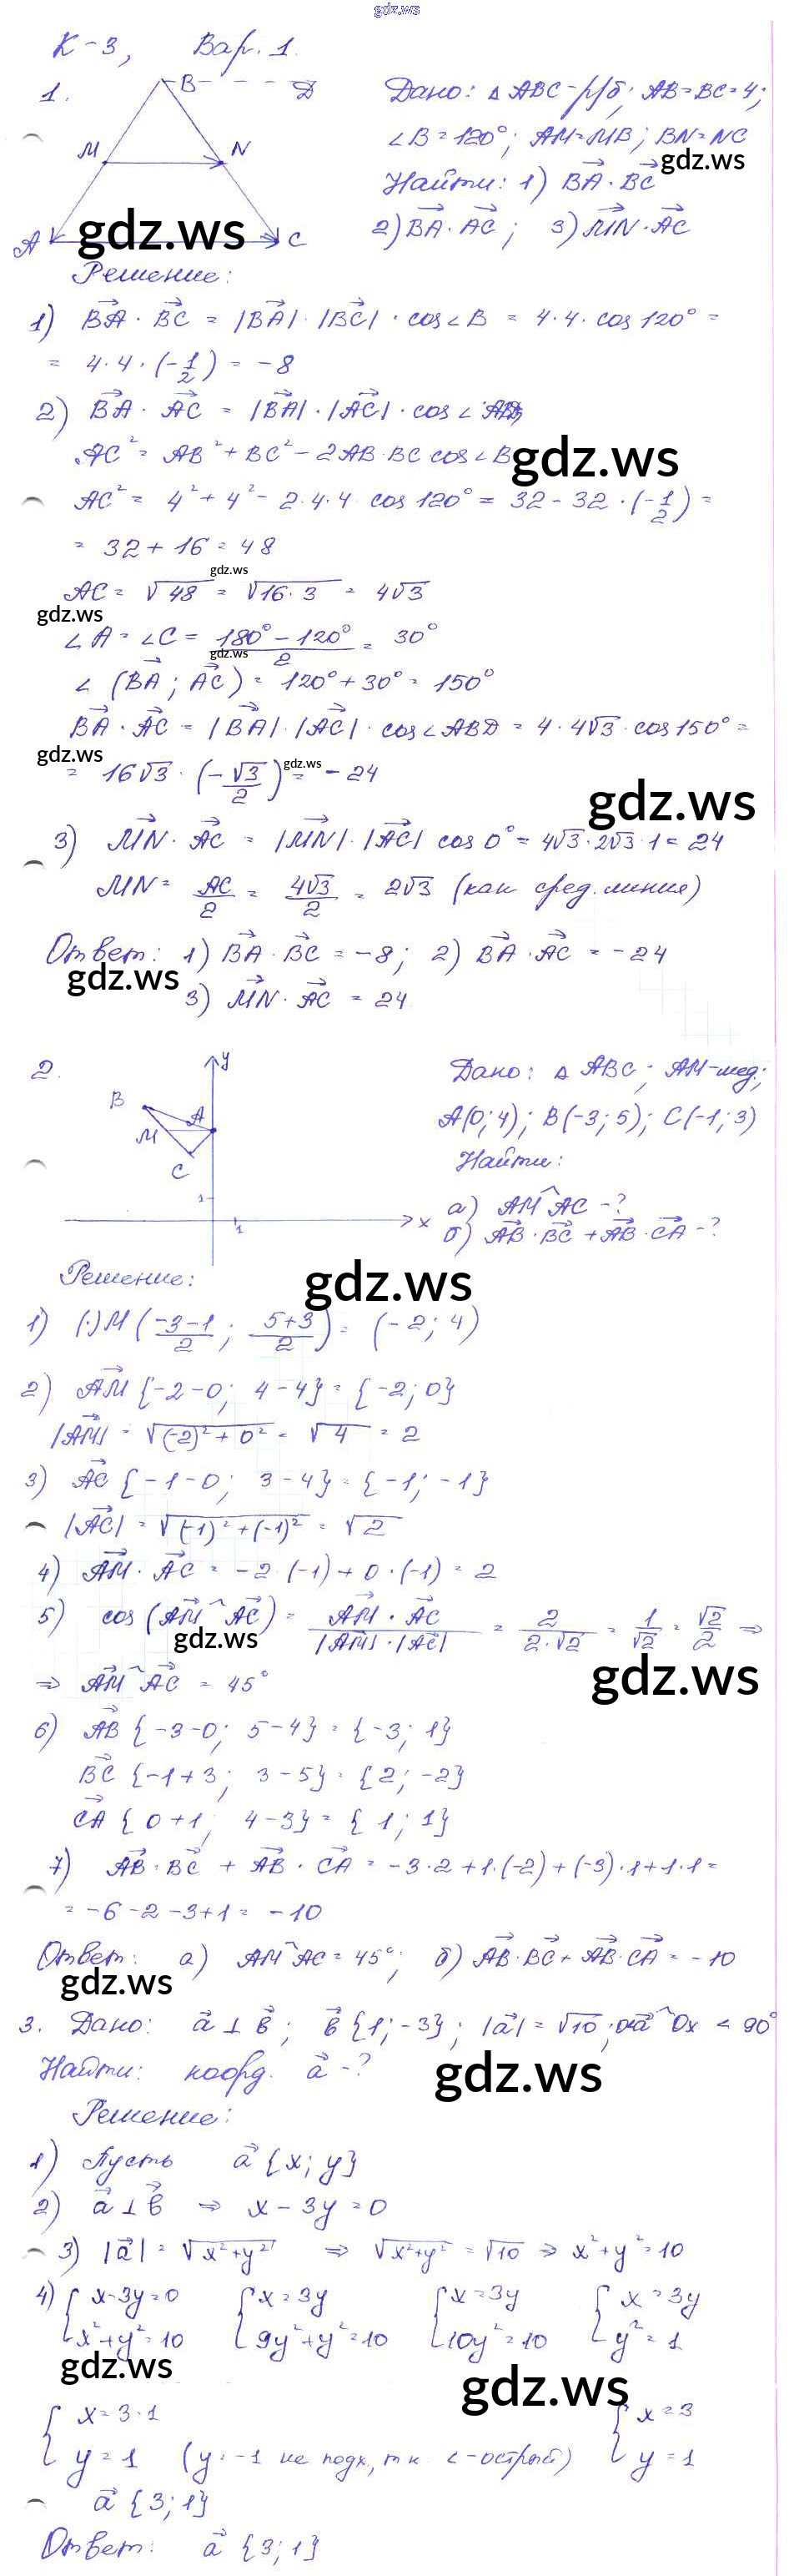 gdz.ws
К-3, Вар. 1.
1.
B
D
M
N
A
C
gdz.ws
Дано: Δ ABC - р/б; AB = BC = 4;
∠B = 120°; AM = MB; BN = NC
gdz.ws
Найти: 1) BA · BC
2) BA · AC; 3) MN · AC
Решение:
1) BA · BC = |BA| · |BC| · cos∠B = 4 · 4 · cos 120° =
= 4 · 4 · (-1/2) = -8
2) BA · AC = |BA| · |AC| · cos∠
AC² = AB² + BC² - 2AB · BC cos∠B
gdz.ws
AC² = 4² + 4² - 2·4·4 cos 120° = 32 - 32 · (-1/2) =
= 32 + 16 = 48
gdz.ws
AC = √48 = √16·3 = 4√3
gdz.ws
∠A = ∠C = 180° - 120° / 2 = 30°
gdz.ws
∠(BA; AC) = 120° + 30° = 150°
BA · AC = |BA| · |AC| · cos∠ABD = 4 · 4√3 · cos 150° =
gdz.ws
= 16√3 · (-√3/2) = -24
gdz.ws
gdz.ws
3) MN · AC = |MN| · |AC| cos 0° = 4√3 · 2√3 · 1 = 24
MN = AC/2 = 4√3/2 = 2√3 (как сред. линия)
Ответ: 1) BA · BC = -8; 2) BA · AC = -24
gdz.ws
3) MN · AC = 24
2.
y
B
A
M
C
1
x
1
Дано: Δ ABC; AM-мед;
A(0; 4); B(-3; 5); C(-1; 3)
Найти:
а) AM^AC - ?
б) AB · BC + AB · CA - ?
Решение:
gdz.ws
1) (·)M (-3-1/2; 5+3/2) = (-2; 4)
2) AM {-2-0; 4-4} = {-2; 0}
|AM| = √(-2)² + 0² = √4 = 2
3) AC {-1-0; 3-4} = {-1; -1}
|AC| = √(-1)² + (-1)² = √2
4) AM · AC = -2·(-1) + 0·(-1) = 2
5) cos(AM^AC) = AM · AC / |AM| · |AC| = 2/2·√2 = 1/√2 = √2/2 ⇒
gdz.ws
gdz.ws
⇒ AM^AC = 45°
6) AB {-3-0; 5-4} = {-3; 1}
BC {-1+3; 3-5} = {2; -2}
CA {0+1; 4-3} = {1; 1}
7) AB · BC + AB · CA = -3·2 + 1·(-2) + (-3)·1 + 1·1 =
= -6 - 2 - 3 + 1 = -10
Ответ: а) AM^AC = 45°; б) AB · BC + AB · CA = -10
gdz.ws
3. Дано: a ⊥ b; b {1; -3}; |a| = √10; a^Ox < 90°
Найти: коорд. a - ?
gdz.ws
Решение:
1) Пусть a {x; y}
2) a ⊥ b ⇒ x - 3y = 0
3) |a| = √x²+y² ⇒ √x²+y² = √10 ⇒ x² + y² = 10
4) { x-3y=0 { x = 3y { x = 3y { x = 3y
x²+y²=10 9y²+y²=10 10y²=10 y²=1
gdz.ws
gdz.ws
{ x = 3·1 { x = 3
y = 1 (y = -1 не подх, т к ∠-острый) y = 1
a {3; 1}
Ответ: a {3; 1}